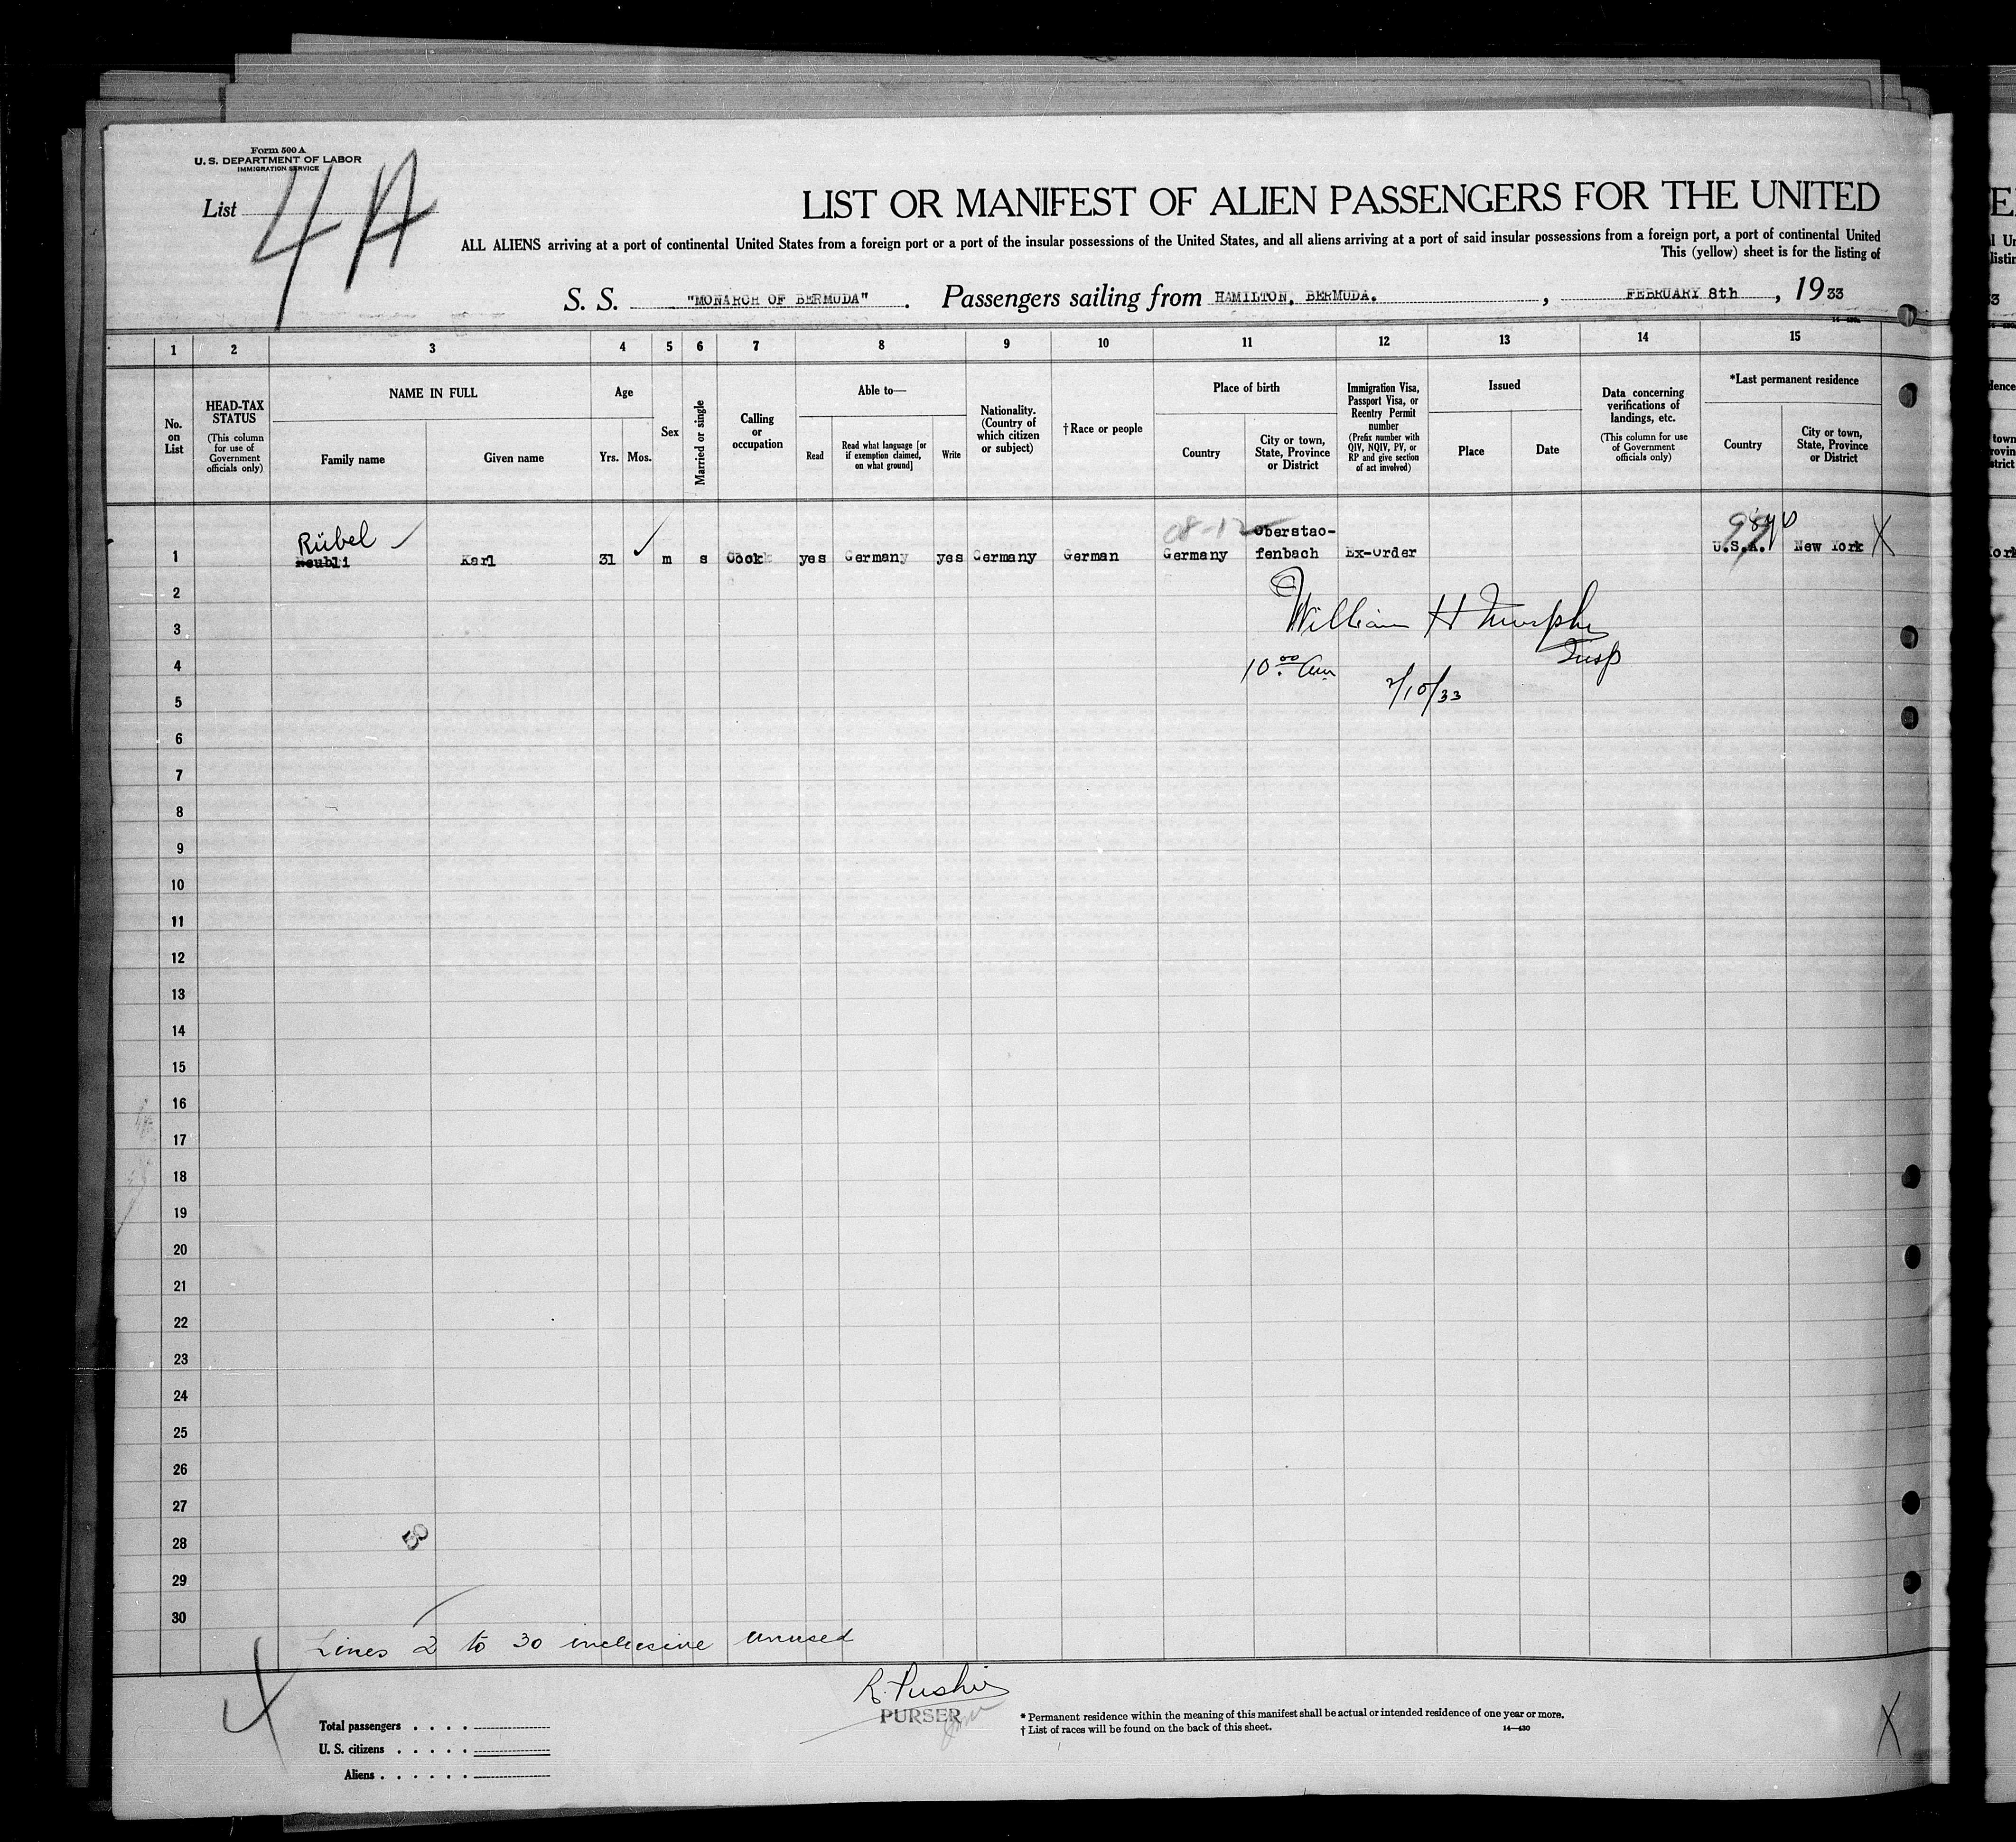 Form 500 A
U. S. DEPARTMENT OF LABOR
IMMIGRATION SERVICE
List 4A
LIST OR MANIFEST OF ALIEN PASSENGERS FOR THE UNITED
ALL ALIENS arriving at a port of continental United States from a foreign port or a port of the insular possessions of the United States, and all aliens arriving at a port of said insular possessions from a foreign port, a port of continental United
This (yellow) sheet is for the listing of
S. S. "MONARCH OF BERMUDA". Passengers sailing from HAMILTON, BERMUDA. , FEBRUARY 8th , 1933
1 2 3 4 5 6 7 8 9 10 11 12 13 14 15
No. on List
HEAD-TAX STATUS
(This column for use of Government officials only)
NAME IN FULL
Family name
Given name
Age
Yrs. Mos.
Sex
Married or single
Calling or occupation
Able to—
Read
Read what language [or if exemption claimed, on what ground]
Write
Nationality. (Country of which citizen or subject)
†Race or people
Place of birth
Country
City or town, State, Province or District
Immigration Visa, Passport Visa, or Reentry Permit number
(Prefix number with QIV, NQIV, PV, or RP and give section of act involved)
Issued
Place
Date
Data concerning verifications of landings, etc.
(This column for use of Government officials only)
*Last permanent residence
Country
City or town, State, Province or District
Rübel
1 Karl 31 m s Cook yes Germany yes Germany German Germany Oberstao-
fenbach Ex-Order U.S.A. New York X
2
William H Murphy
3
Insp
4
10:00 am
2/10/33
5
6
7
8
9
10
11
12
13
14
15
16
17
18
19
20
21
22
23
24
25
26
27
28
29
30
Lines 2 to 30 inclusive unused
PURSER
Total passengers . . . .
U. S. citizens . . . . .
Aliens . . . . . .
* Permanent residence within the meaning of this manifest shall be actual or intended residence of one year or more.
† List of races will be found on the back of this sheet.
14—430
X